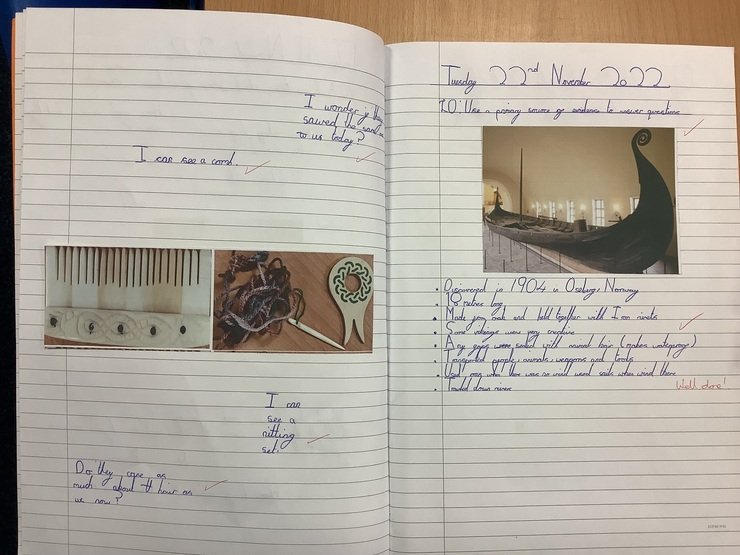 I wonder if they
sawed the same
to us today?
I can see a comb.
I can
see a
nitting
set.
Do they care as
much about thier hair as
we now?
Tuesday 22nd November 2022
LO: Use a primary source of evidence to answer questions
Discovered in 1904 in Oseburg, Norway
18 metres long
Made from oak and held together with Iron rivets
Some vikings were very creative
Any gaps were sealed with animal hair (makes waterproof)
Transported people, animals, weapons and tools
Used oars when there was no wind used sails when wind there
Travled down rivers
Well done!